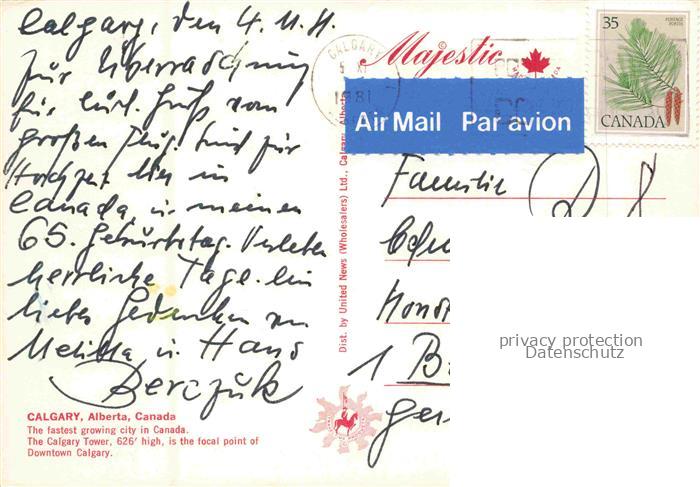 Calgary, den 4.11.81
Zur Überraschung
für Euch. Gruß vom
großen Flug. Sind zur
Hochzeit hier in
Canada u. meinen
65. Geburtstag. Verleben
herrliche Tage. Ein
liebes Gedenken von
Melitta u. Hans
Berczuk
CALGARY, Alberta, Canada
The fastest growing city in Canada.
The Calgary Tower, 626' high, is the focal point of
Downtown Calgary.
Dist. by United News (Wholesalers) Ltd., Calgary, Alberta
Majestic
CALGARY
5 XI
1981
35
POSTAGE
POSTES
CANADA
Air Mail Par avion
Familie
1 B
Ger
privacy protection
Datenschutz